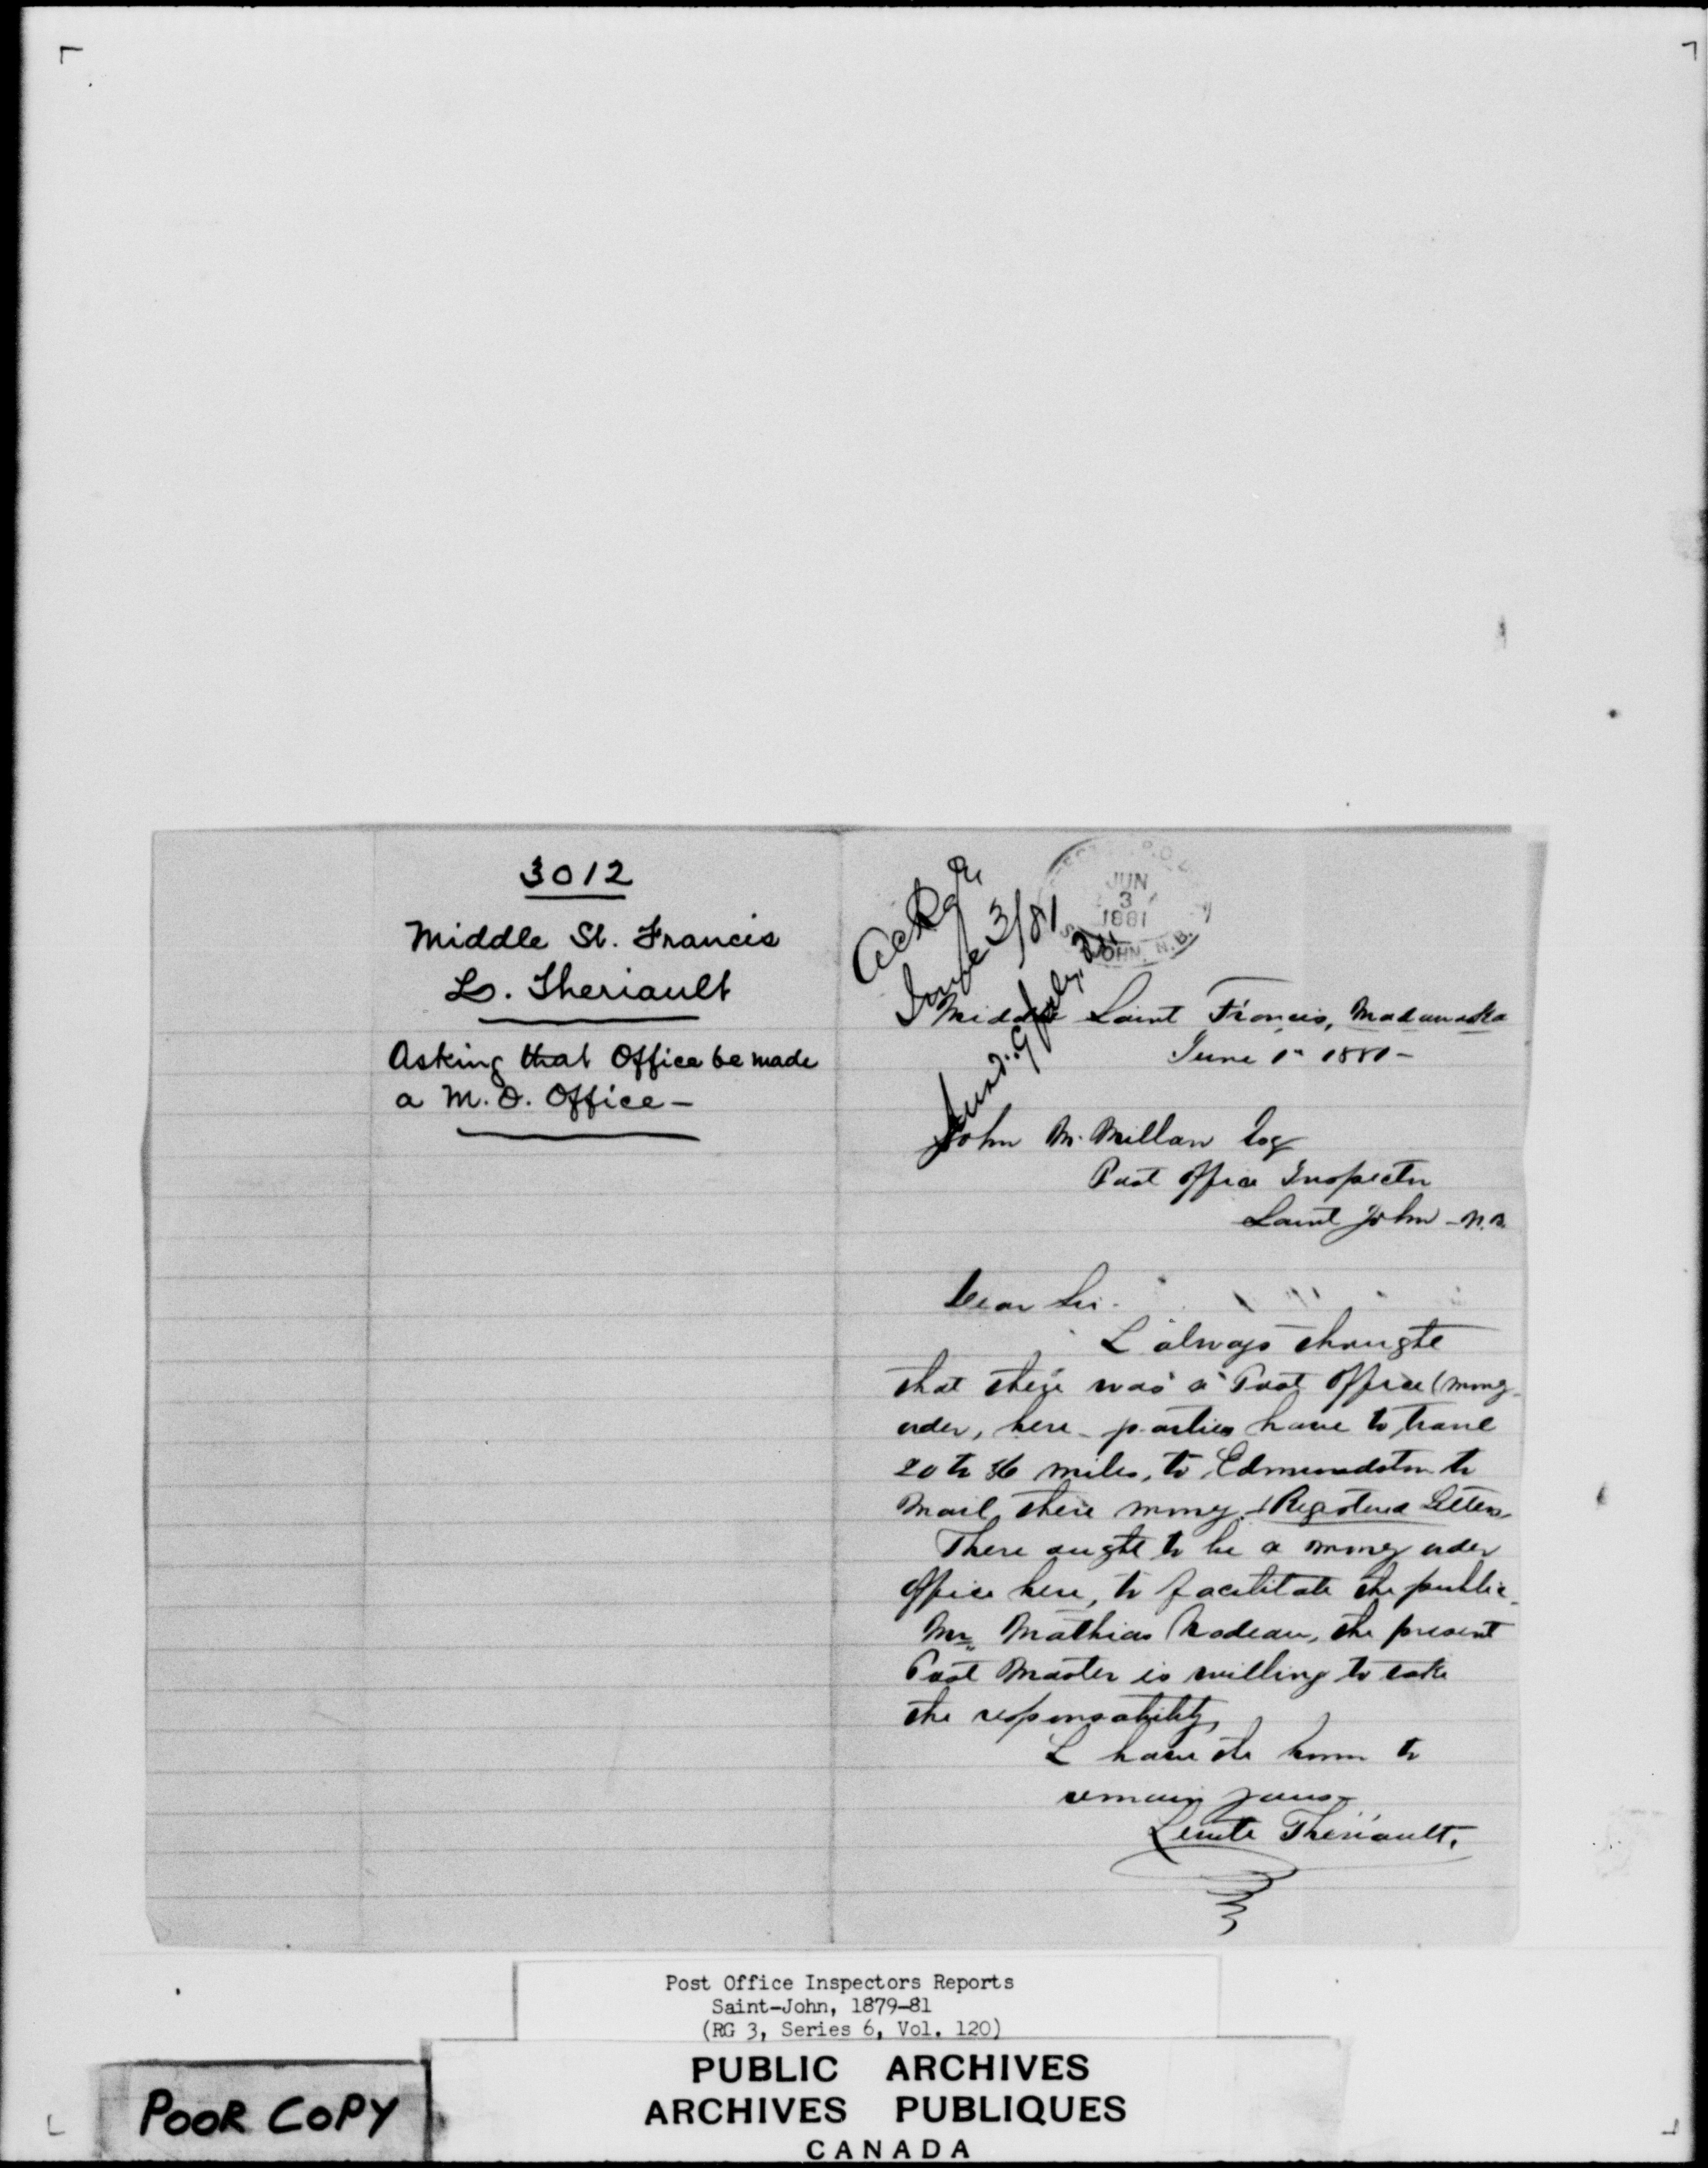 3012
Middle St. Francis
L. Theriault
Asking that Office be made
a M.O. Office—
Ackge
June 3/81
JUN
3
1881
JOHN, N.B.
Middle Saint Francis, Madawaska
June 1st 1881—
John McMillan Esq
Post Office Inspector
Saint John - N.B.
Dear Sir.
I always thought
that there was a Post Office (money
order, here - parties have to travel
20 to 36 miles, to Edmundston to
Mail there money & Registered Letters,
There aught to be a money order
Office here, to facilitate the public.
Mr. Mathias Nadeau, the present
Post Master is willing to take
the responsability,
I have the honor to
remain yours
Levite Thériault.
Post Office Inspectors Reports
Saint-John, 1879-81
(RG 3, Series 6, Vol. 120)
PUBLIC ARCHIVES
ARCHIVES PUBLIQUES
CANADA
POOR COPY